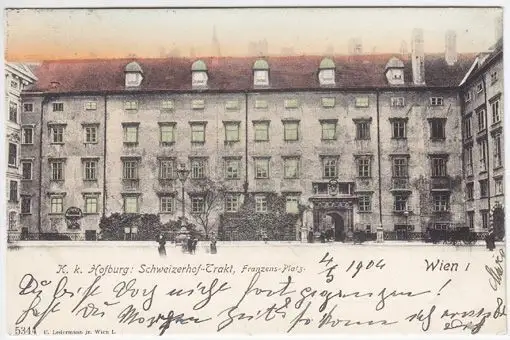 K. k. Hofburg: Schweizerhof-Trakt, Franzens-Platz.
4/5 1904
Wien I
Du bist doch nicht fortgegangen!
hast Du Morgen Zeit? so komme ich
5344 C. Ledermann jr. Wien I.